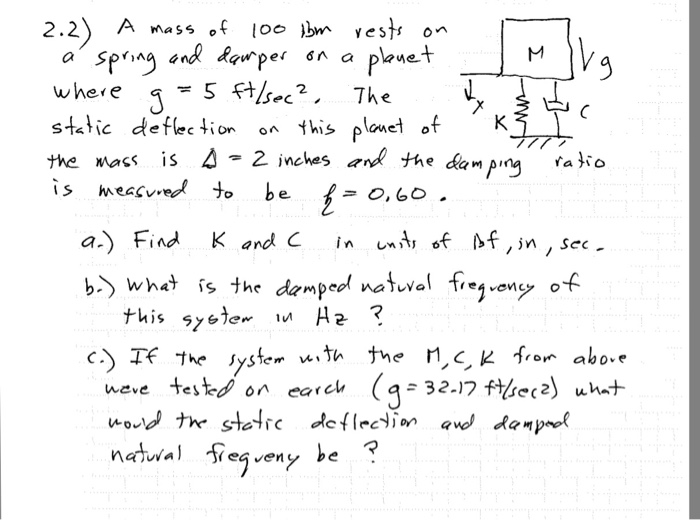 2.2) A mass of 100 lbm rests on
a spring and damper on a planet
where g = 5 ft/sec². The
static deflection on this planet of
the mass is Δ = 2 inches and the damping ratio
is measured to be ξ = 0.60.
M
g
x
K
C
a.) Find K and C in units of lbf, in, sec.
b.) What is the damped natural frequency of
this system in Hz ?
c.) If the system with the M, C, K from above
were tested on earch (g = 32.17 ft/sec2) what
would the static deflection and damped
natural freqveny be ?